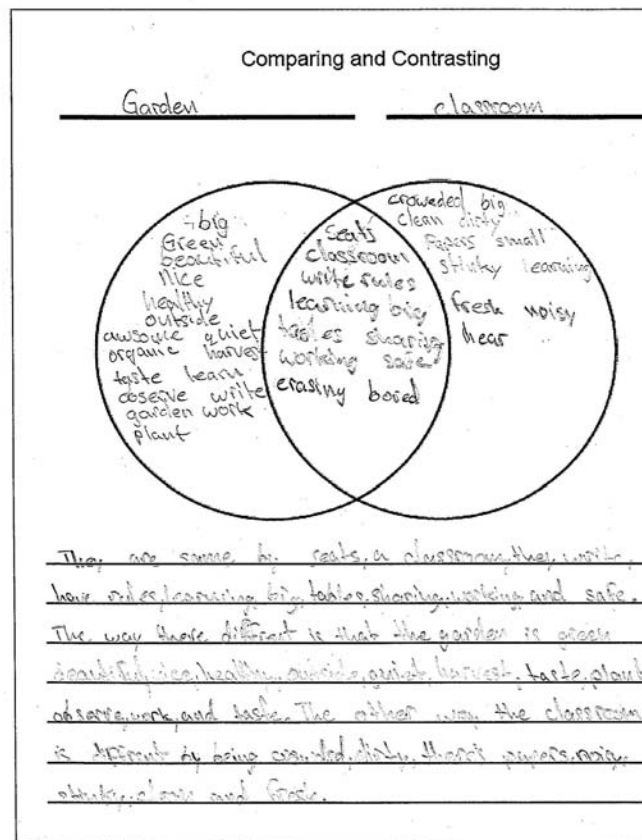 Comparing and Contrasting
Garden
classroom
big
Green
beautiful
nice
healthy
outside
awsome quiet
organic harvest
taste learn
observe write
garden work
plant
Seats
classroom
write rules
learning big
tables sharing
working safe
erasing bored
crowded big
clean dirty
Papers small
stinky learning
fresh noisy
hear
They are same by seats, a classroom, they write,
have rules, learning, big, tables, sharing, working, and safe.
The way there diffrent is that the garden is green
beautiful, nice, healthy, outside, quiet, harvest, taste, plant
observe, work, and taste. The other way the classroom
is diffrent by being crowded, dirty, there's papers, noisy,
stinky, clean and fresh.